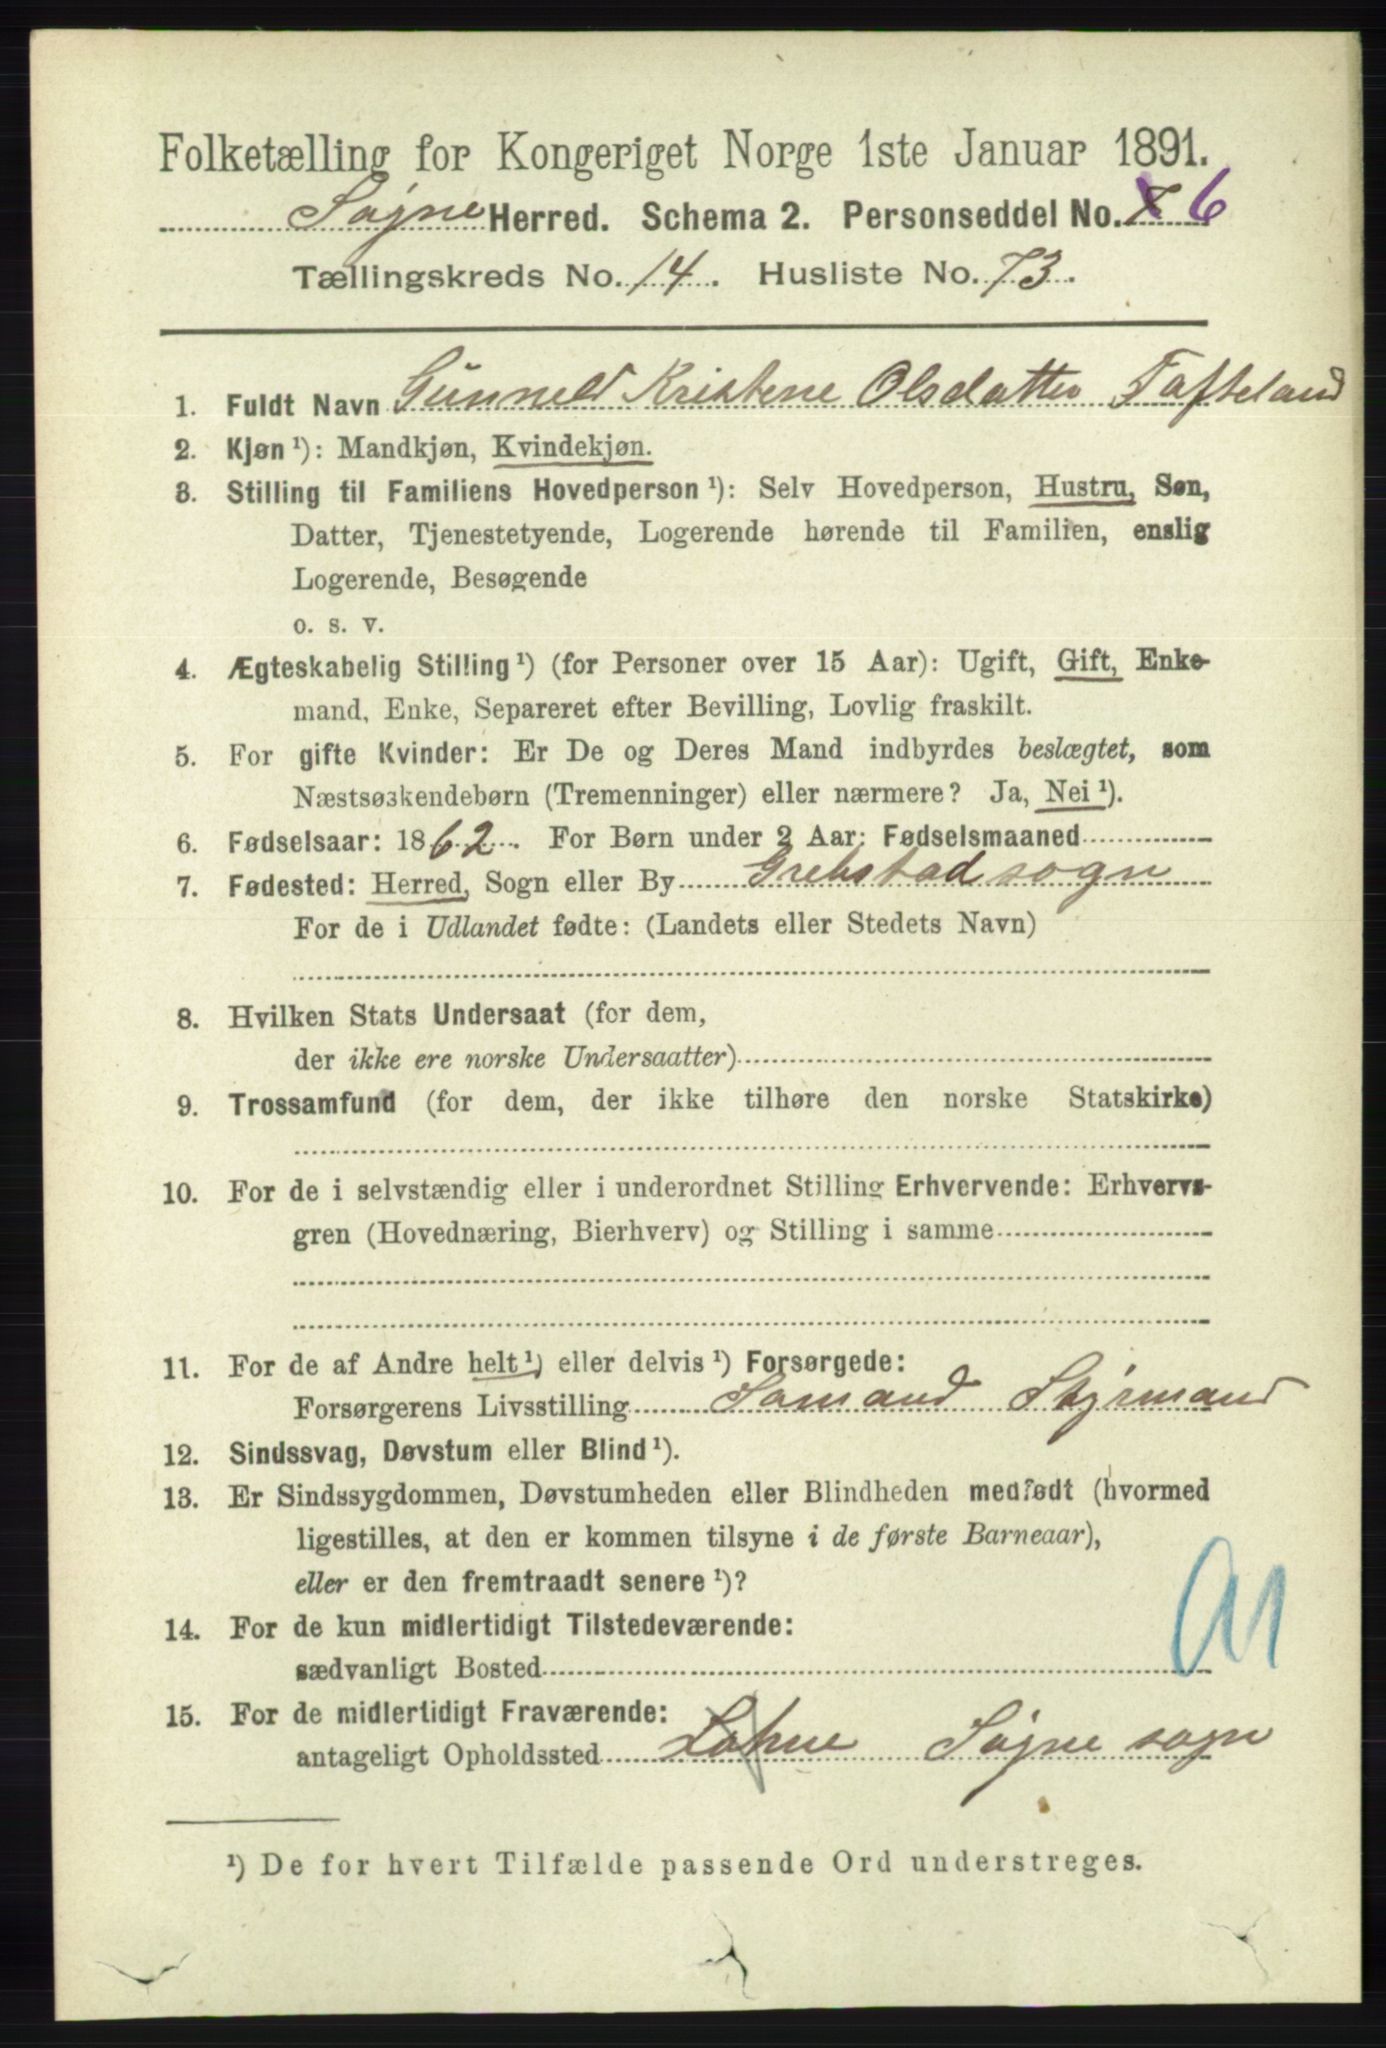 Folketælling for Kongeriget Norge 1ste Januar 1891.
Søgne Herred. Schema 2. Personseddel No. 7 6
Tællingskreds No. 14. Husliste No. 73.
1. Fuldt Navn Gunneld Kristene Olsdatter Tafteland
2. Kjøn ¹): Mandkjøn, Kvindekjøn.
3. Stilling til Familiens Hovedperson ¹): Selv Hovedperson, Hustru, Søn,
Datter, Tjenestetyende, Logerende hørende til Familien, enslig
Logerende, Besøgende
o. s. v.
4. Ægteskabelig Stilling ¹) (for Personer over 15 Aar): Ugift, Gift, Enke-
mand, Enke, Separeret efter Bevilling, Lovlig fraskilt.
5. For gifte Kvinder: Er De og Deres Mand indbyrdes beslægtet, som
Næstsøskendebørn (Tremenninger) eller nærmere? Ja, Nei ¹).
6. Fødselsaar: 1862. For Børn under 2 Aar: Fødselsmaaned
7. Fødested: Herred, Sogn eller By Grebstad sogn
For de i Udlandet fødte: (Landets eller Stedets Navn)
8. Hvilken Stats Undersaat (for dem,
der ikke ere norske Undersaatter)
9. Trossamfund (for dem, der ikke tilhøre den norske Statskirke)
10. For de i selvstændig eller i underordnet Stilling Erhvervende: Erhvervs-
gren (Hovednæring, Bierhverv) og Stilling i samme
11. For de af Andre helt ¹) eller delvis ¹) Forsørgede:
Forsørgerens Livsstilling Sømand Styrmand
12. Sindssvag, Døvstum eller Blind ¹).
13. Er Sindssygdommen, Døvstumheden eller Blindheden medfødt (hvormed
ligestilles, at den er kommen tilsyne i de første Barneaar),
eller er den fremtraadt senere ¹)?
14. For de kun midlertidigt Tilstedeværende:
sædvanligt Bosted
15. For de midlertidigt Fraværende:
antageligt Opholdssted Lohne Søgne sogn
¹) De for hvert Tilfælde passende Ord understreges.